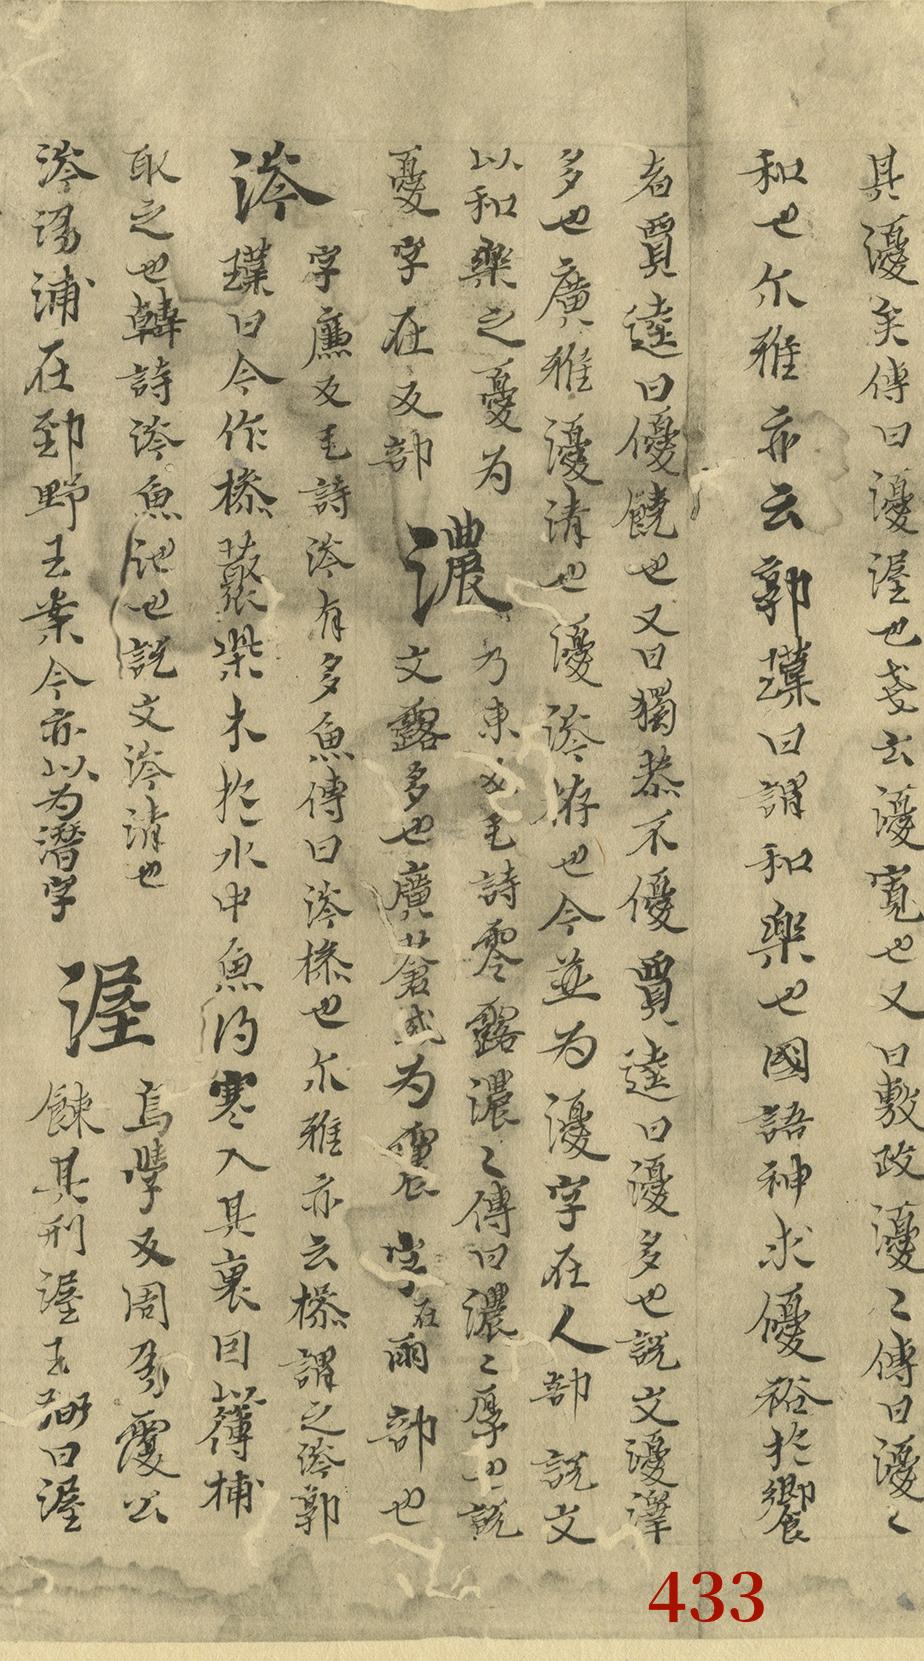 具瀀矣傳曰瀀渥也戔云瀀寬也又曰敷政瀀〻傳曰瀀〻
和也尒雅亦云郭璞曰謂和樂也國語神求優裕於饗
者賈逵曰優饒也又曰獨恭不優賈逵曰瀀多也說文瀀澤
多也廣雅瀀漬也瀀涔洊也今並為瀀字在人部說文
以和樂之憂為
憂字在夊部
濃
乃東反毛詩零露濃〻傳曰濃〻厚也說
文露多也廣蒼或為字在雨部也
涔
字廉反毛詩涔有多魚傳曰涔槮也尒雅亦云槮謂之涔郭
璞曰今作槮叢柴木於水中魚得寒入其裏因以薄捕
取之也韓詩涔魚池也說文涔漬也
涔陽浦在郢野王案今亦以為潛字
渥
烏學反周易覆公
餗其刑渥王弼曰渥
433